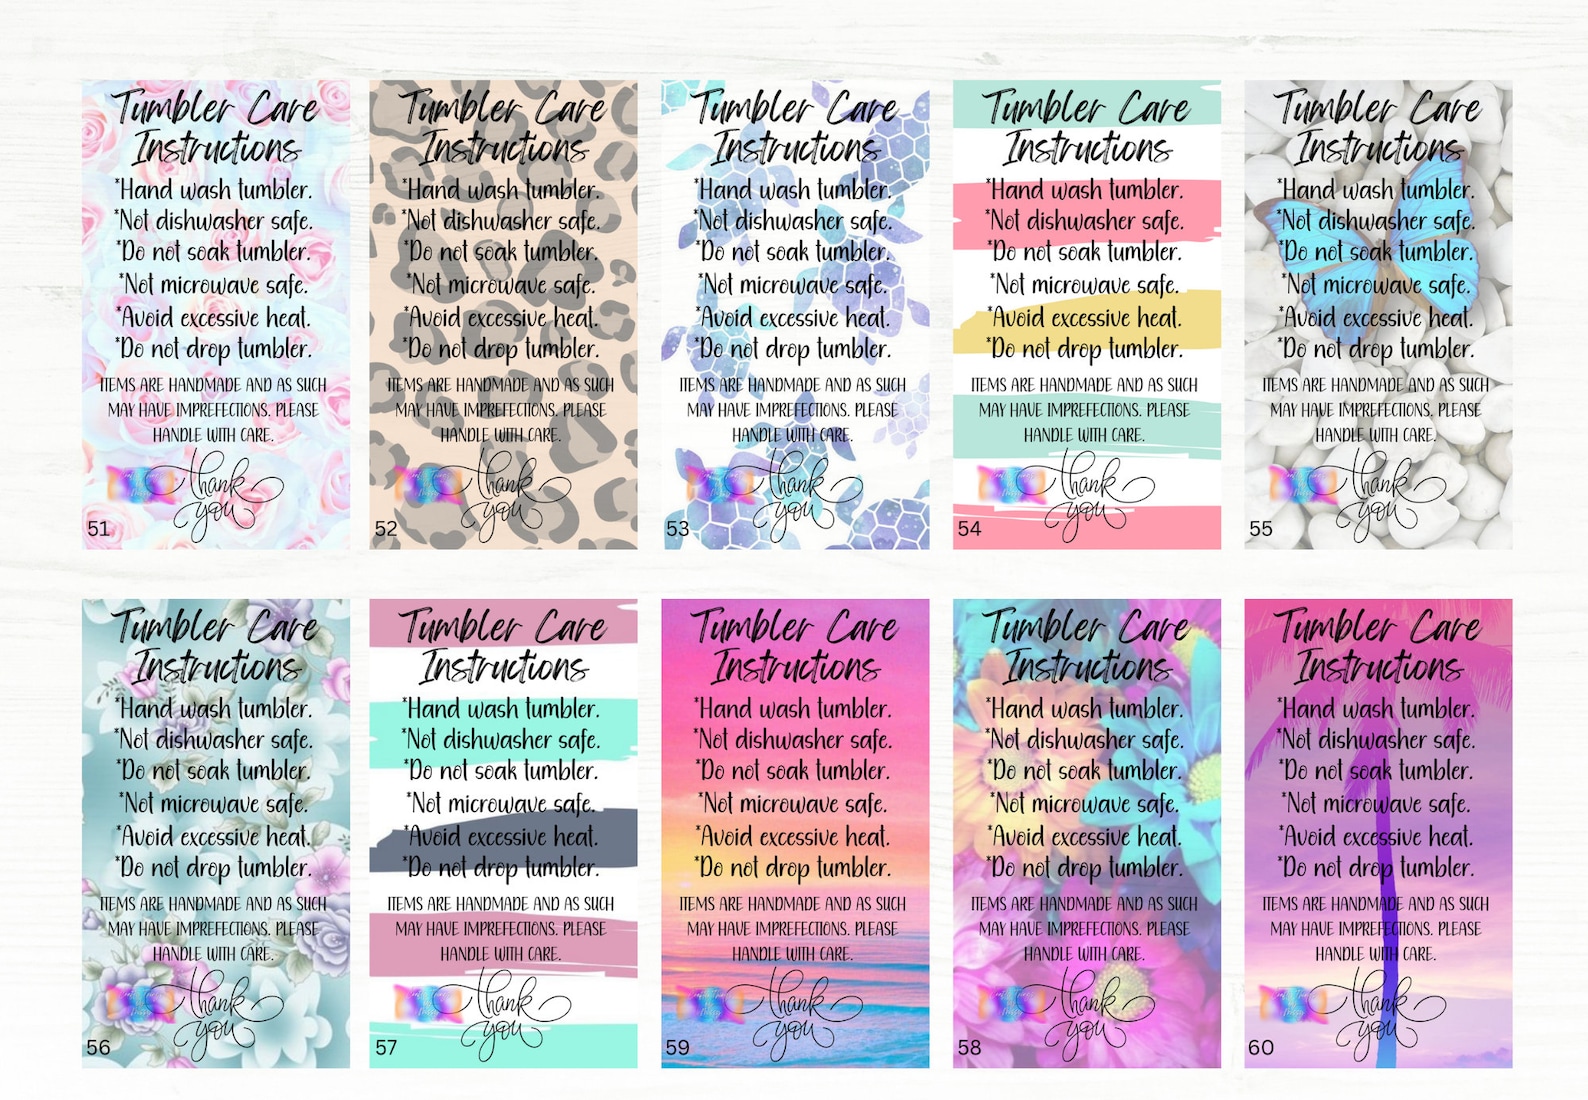 Tumbler Care
Instructions
*Hand wash tumbler.
*Not dishwasher safe.
*Do not soak tumbler.
*Not microwave safe.
*Avoid excessive heat.
*Do not drop tumbler.
ITEMS ARE HANDMADE AND AS SUCH
MAY HAVE IMPREFECTIONS. PLEASE
HANDLE WITH CARE.
thank
you
51
Tumbler Care
Instructions
*Hand wash tumbler.
*Not dishwasher safe.
*Do not soak tumbler.
*Not microwave safe.
*Avoid excessive heat.
*Do not drop tumbler.
ITEMS ARE HANDMADE AND AS SUCH
MAY HAVE IMPREFECTIONS. PLEASE
HANDLE WITH CARE.
thank
you
52
Tumbler Care
Instructions
*Hand wash tumbler.
*Not dishwasher safe.
*Do not soak tumbler.
*Not microwave safe.
*Avoid excessive heat.
*Do not drop tumbler.
ITEMS ARE HANDMADE AND AS SUCH
MAY HAVE IMPREFECTIONS. PLEASE
HANDLE WITH CARE.
thank
you
53
Tumbler Care
Instructions
*Hand wash tumbler.
*Not dishwasher safe.
*Do not soak tumbler.
*Not microwave safe.
*Avoid excessive heat.
*Do not drop tumbler.
ITEMS ARE HANDMADE AND AS SUCH
MAY HAVE IMPREFECTIONS. PLEASE
HANDLE WITH CARE.
thank
you
54
Tumbler Care
Instructions
*Hand wash tumbler.
*Not dishwasher safe.
*Do not soak tumbler.
*Not microwave safe.
*Avoid excessive heat.
*Do not drop tumbler.
ITEMS ARE HANDMADE AND AS SUCH
MAY HAVE IMPREFECTIONS. PLEASE
HANDLE WITH CARE.
thank
you
55
Tumbler Care
Instructions
*Hand wash tumbler.
*Not dishwasher safe.
*Do not soak tumbler.
*Not microwave safe.
*Avoid excessive heat.
*Do not drop tumbler.
ITEMS ARE HANDMADE AND AS SUCH
MAY HAVE IMPREFECTIONS. PLEASE
HANDLE WITH CARE.
thank
you
56
Tumbler Care
Instructions
*Hand wash tumbler.
*Not dishwasher safe.
*Do not soak tumbler.
*Not microwave safe.
*Avoid excessive heat.
*Do not drop tumbler.
ITEMS ARE HANDMADE AND AS SUCH
MAY HAVE IMPREFECTIONS. PLEASE
HANDLE WITH CARE.
thank
you
57
Tumbler Care
Instructions
*Hand wash tumbler.
*Not dishwasher safe.
*Do not soak tumbler.
*Not microwave safe.
*Avoid excessive heat.
*Do not drop tumbler.
ITEMS ARE HANDMADE AND AS SUCH
MAY HAVE IMPREFECTIONS. PLEASE
HANDLE WITH CARE.
thank
you
59
Tumbler Care
Instructions
*Hand wash tumbler.
*Not dishwasher safe.
*Do not soak tumbler.
*Not microwave safe.
*Avoid excessive heat.
*Do not drop tumbler.
ITEMS ARE HANDMADE AND AS SUCH
MAY HAVE IMPREFECTIONS. PLEASE
HANDLE WITH CARE.
thank
you
58
Tumbler Care
Instructions
*Hand wash tumbler.
*Not dishwasher safe.
*Do not soak tumbler.
*Not microwave safe.
*Avoid excessive heat.
*Do not drop tumbler.
ITEMS ARE HANDMADE AND AS SUCH
MAY HAVE IMPREFECTIONS. PLEASE
HANDLE WITH CARE.
thank
you
60